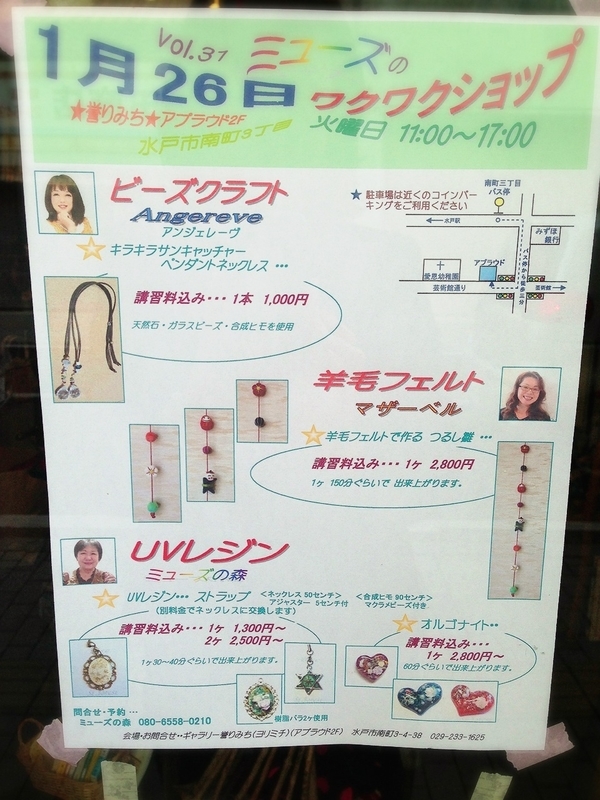 Vol.31 ミューズの
1月26日 ワクワクショップ
★誉りみち★アプラウド2F
火曜日 11:00～17:00
水戸市南町3丁目
ビーズクラフト
Angereve
アンジェレーヴ
キラキラサンキャッチャー
ペンダントネックレス …
講習料込み・・・ 1本 1,000円
天然石・ガラスビーズ・合成ヒモを使用
★ 駐車場は近くのコインパー
キングをご利用ください
南町三丁目
バス停
水戸駅
みずほ
銀行
バス停から徒歩三分
アプラウド
愛恩幼稚園
芸術館通り
芸術館
羊毛フェルト
マザーベル
羊毛フェルトで作る つるし雛 …
講習料込み・・・ 1ヶ 2,800円
1ヶ 150分ぐらいで 出来上がります。
UVレジン
ミューズの森
UVレジン… ストラップ <ネックレス 50センチ> <合成ヒモ 90センチ>
アジャスター 5センチ付 マクラメビーズ付き
(別料金でネックレスに交換します)
講習料込み・・・ 1ヶ 1,300円～
2ヶ 2,500円～
1ヶ30～40分ぐらいで出来上がります。
オルゴナイト・・
講習料込み・・・
1ヶ 2,800円～
60分ぐらいで出来上がります。
樹脂バラ2ヶ使用
問合せ・予約 …
ミューズの森 080-6558-0210
会場・お問合せ・・ギャラリー誉りみち(ヨリミチ)(アプラウド2F) 水戸市南町3-4-38 029-233-1625